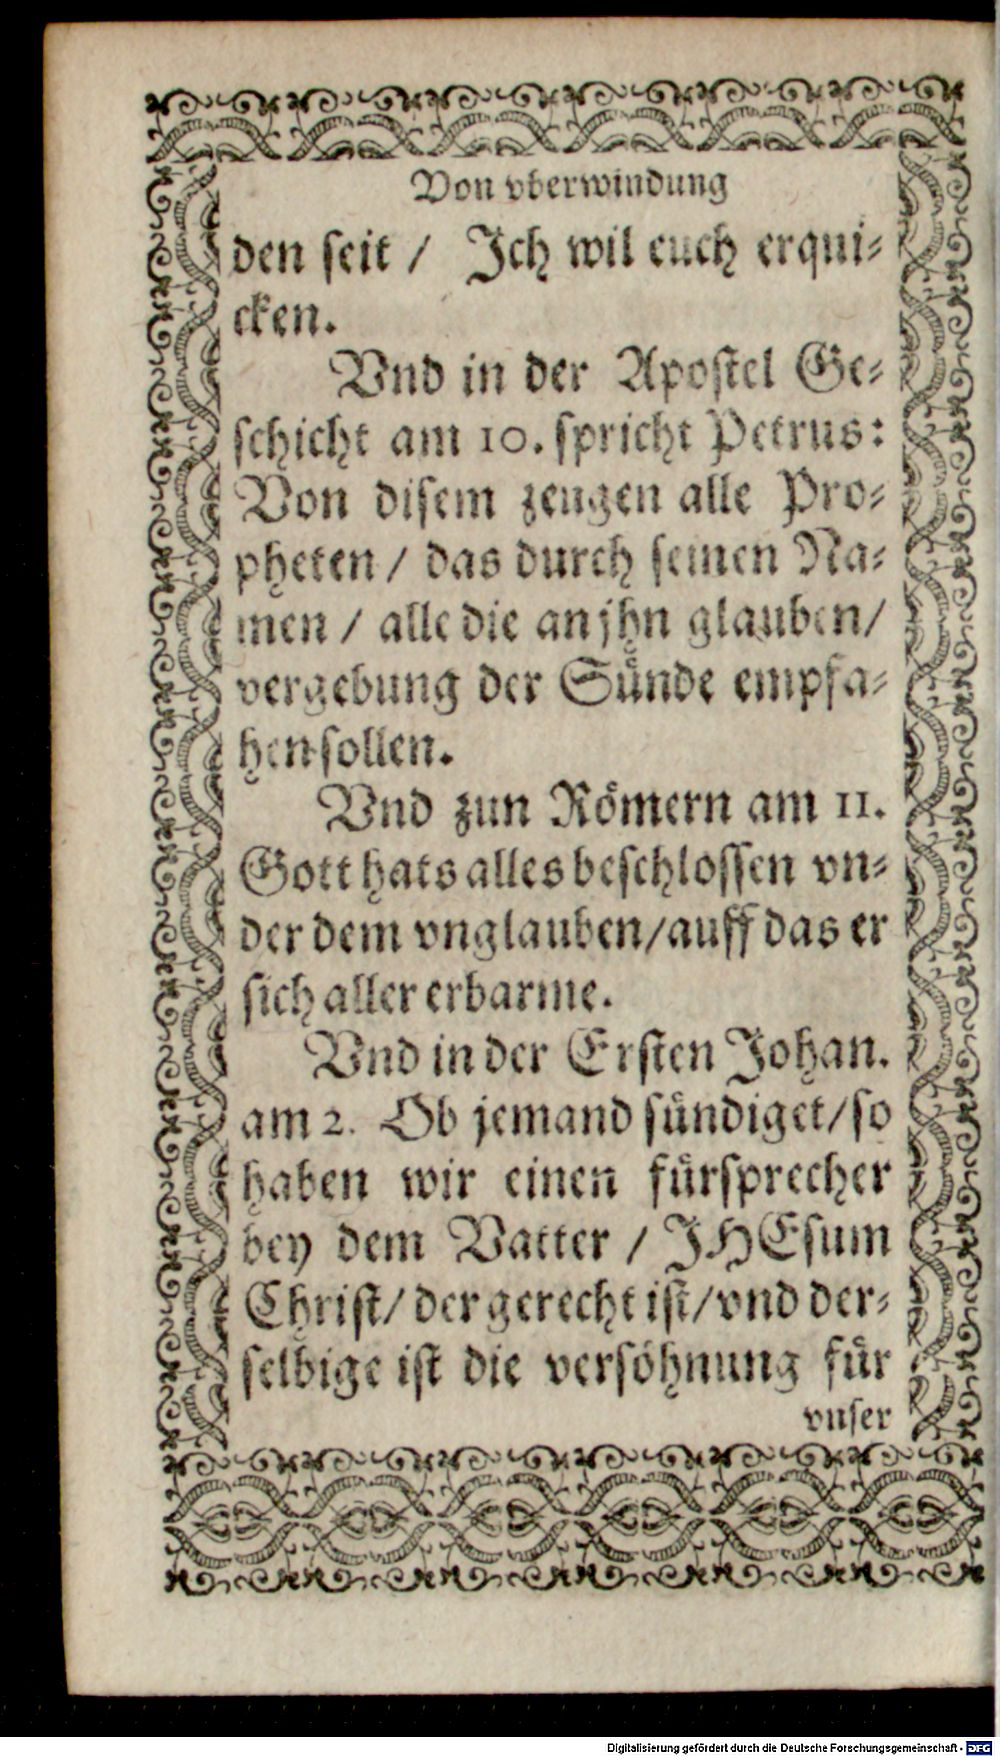 Von vberwindung
den seit / Ich wil euch erqui-
cken.
Vnd in der Apostel Ge-
schicht am 10. spricht Petrus:
Von disem zeugen alle Pro-
pheten / das durch seinen Na-
men / alle die an jhn glauben/
vergebung der Sünde empfa-
hen sollen.
Vnd zun Römern am 11.
Gott hats alles beschlossen vn-
der dem vnglauben/auff das er
sich aller erbarme.
Vnd in der Ersten Johan.
am 2. Ob jemand sündiget/so
haben wir einen fürsprecher
bey dem Vatter / JHEsum
Christ/ der gerecht ist/vnd der-
selbige ist die versöhnung für
vnser
Digitalisierung gefördert durch die Deutsche Forschungsgemeinschaft - DFG